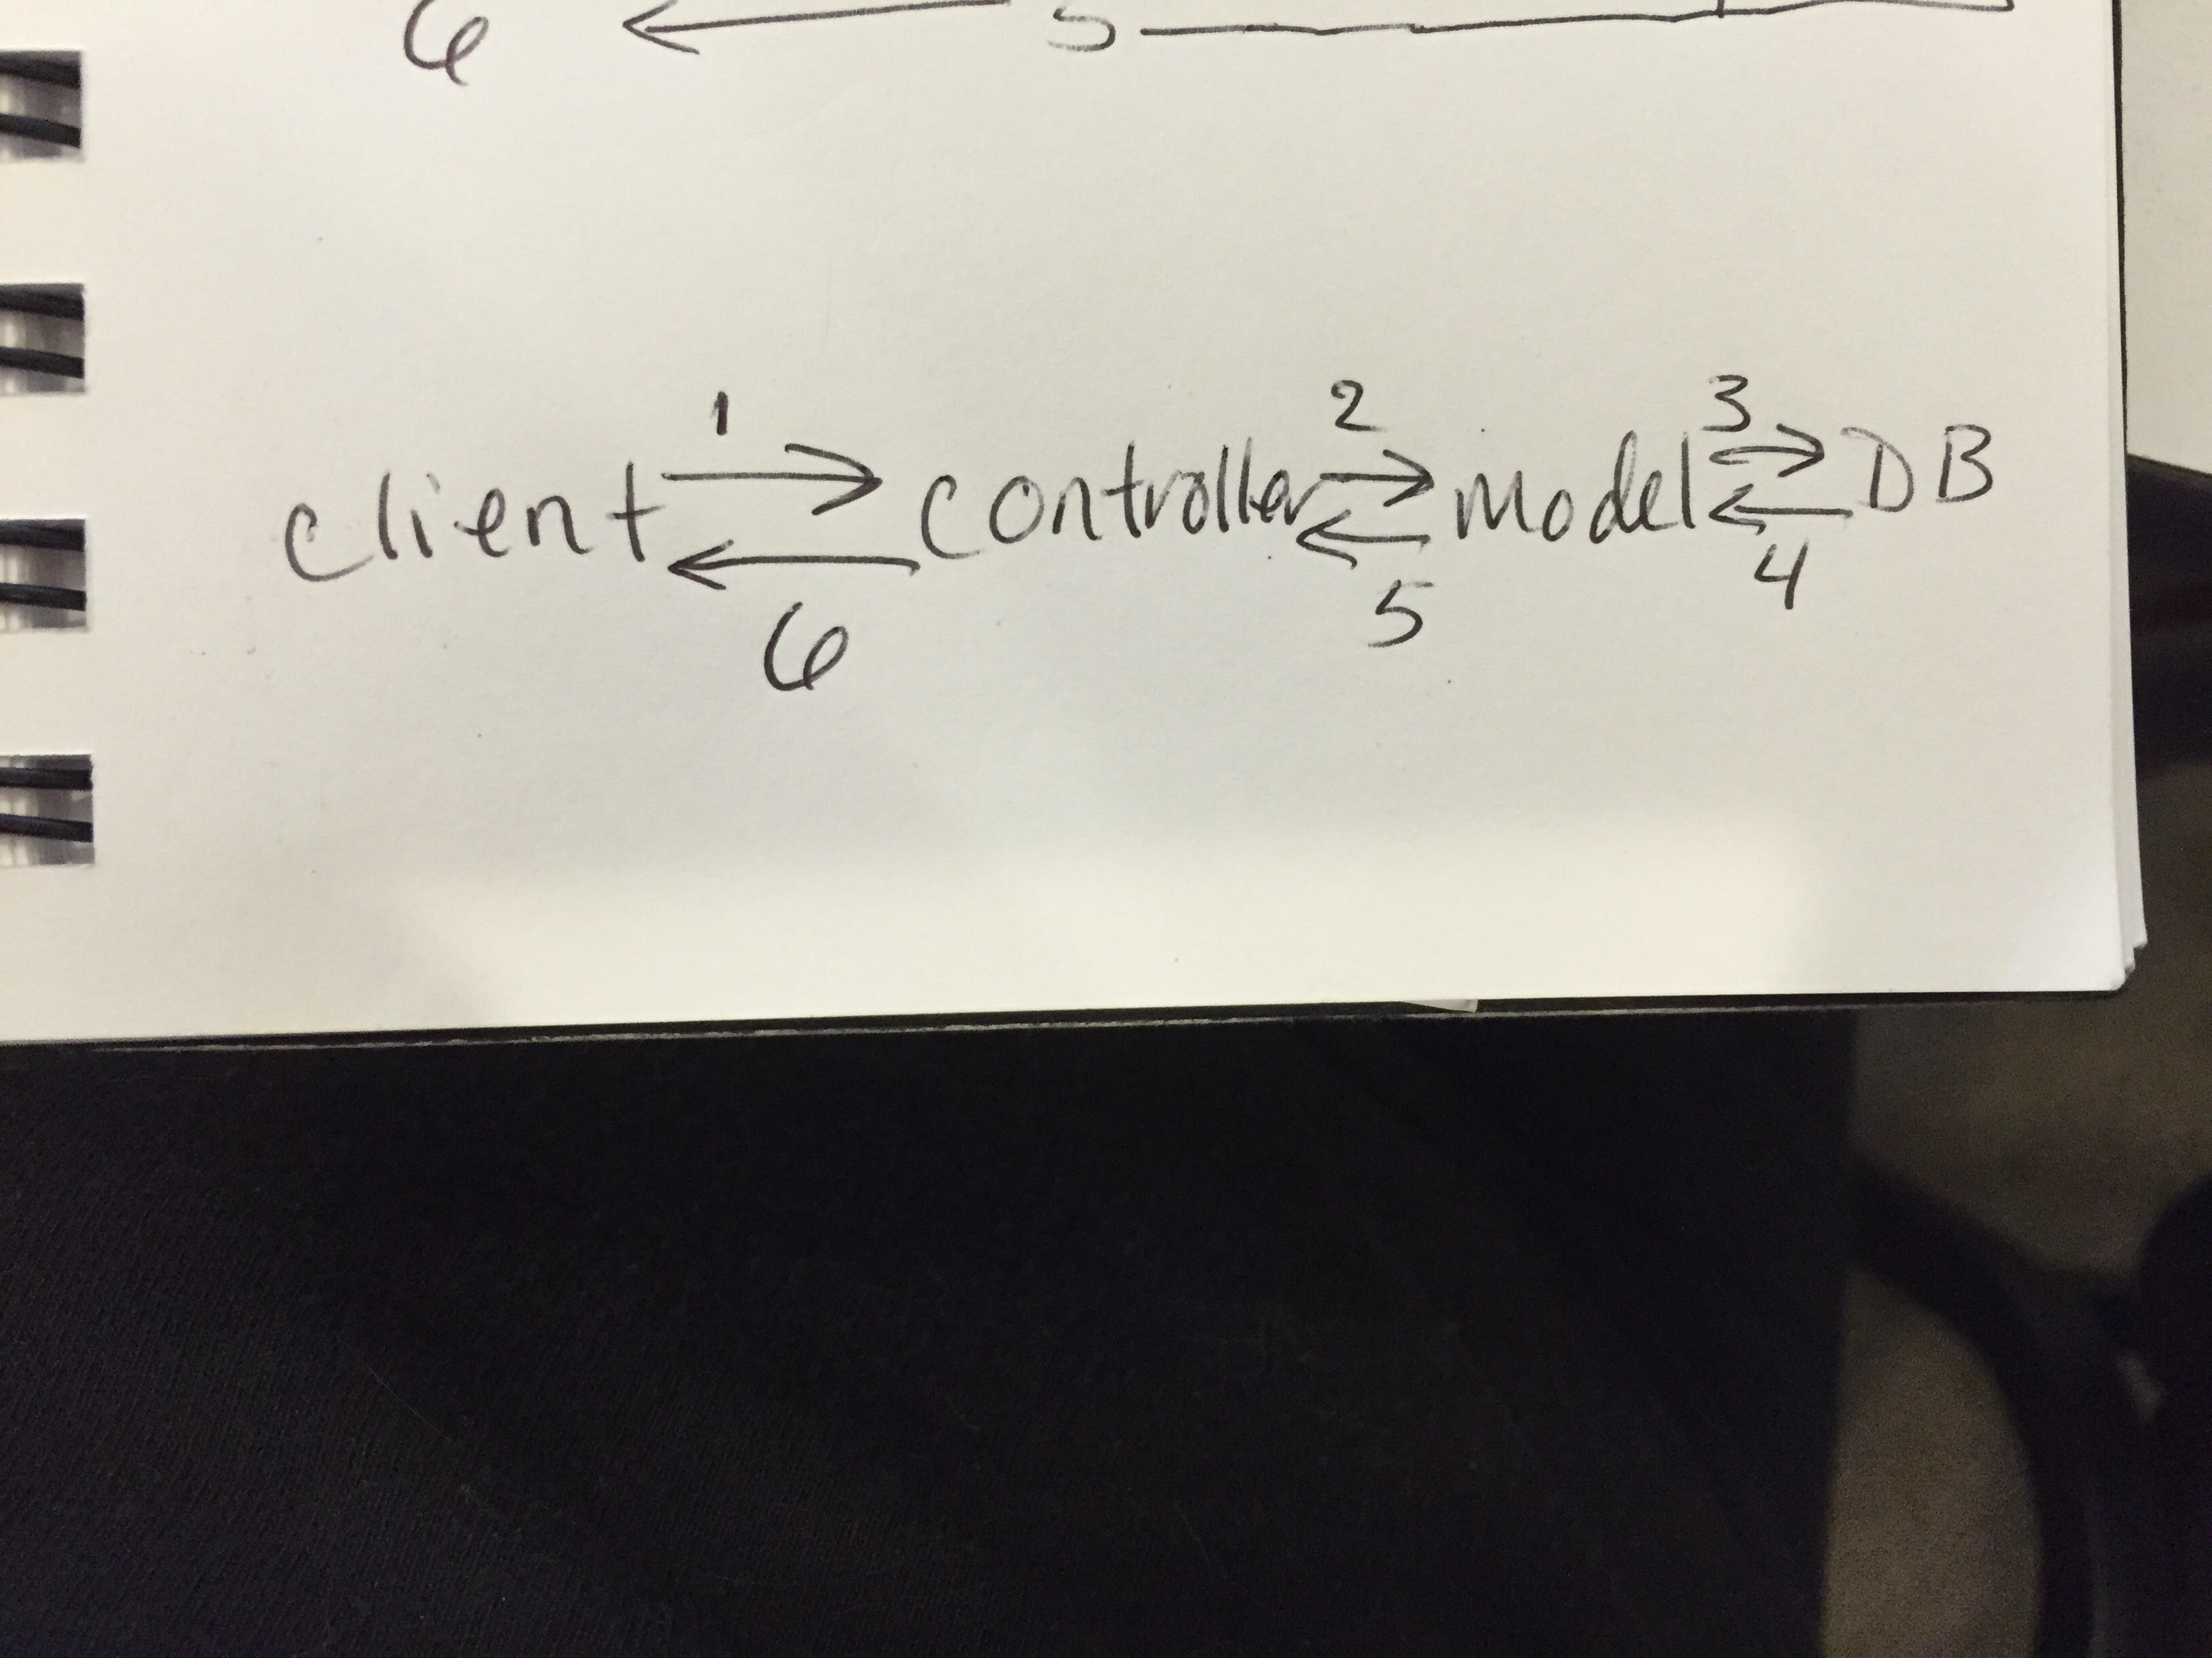 6 5
1 2 3
client controller model DB
6 5 4